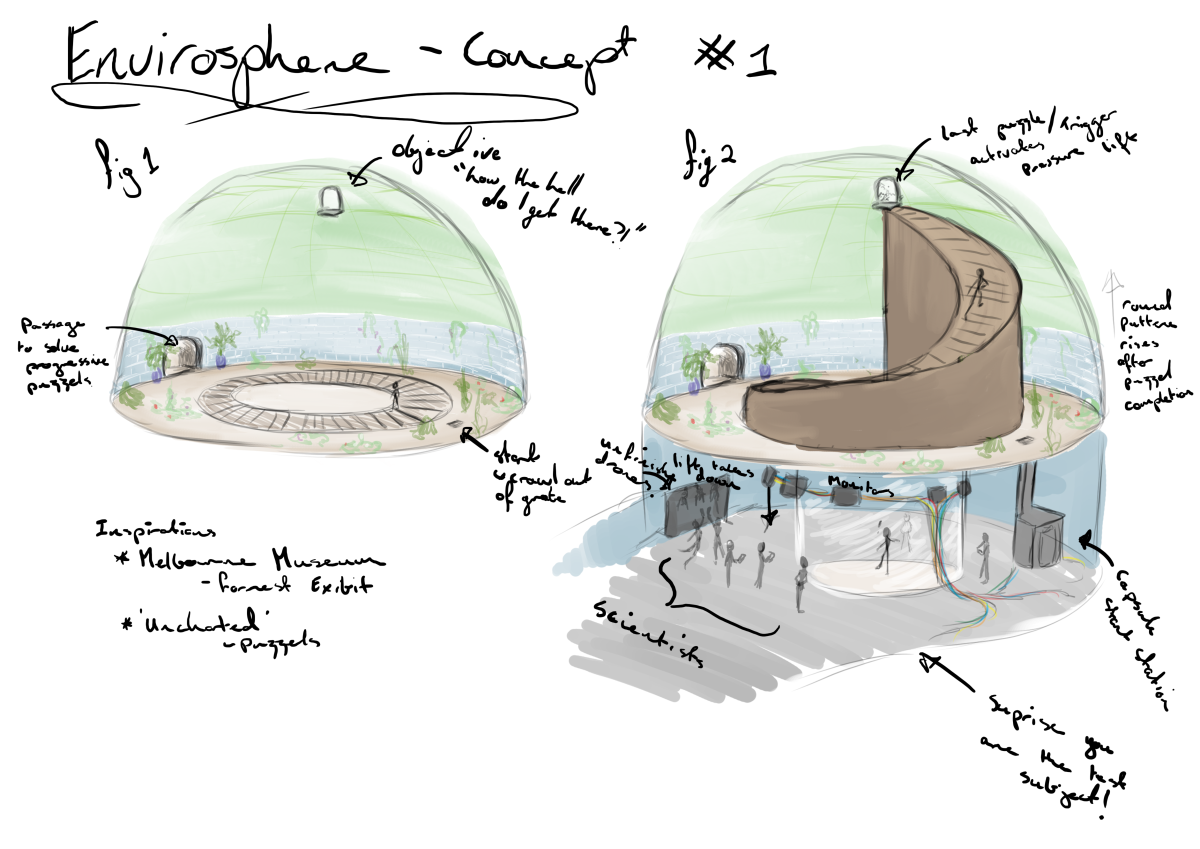 Envirosphere - Concept #1
fig 1
objective
"how the hell
do I get there?!"
passage
to solve
progressive
puzzels
start
crawl out
of grate
Inspirations
* Melbourne Museum
- Forrest Exibit
* 'Unchated'
- puzzels
fig 2
last puzzle/trigger
activates
pressure lift
round
pattern
rises
after
puzzel
completion
lift takes
down
Monitors
Scientists
Capsule
start station
Suprise you
are the test
subject!